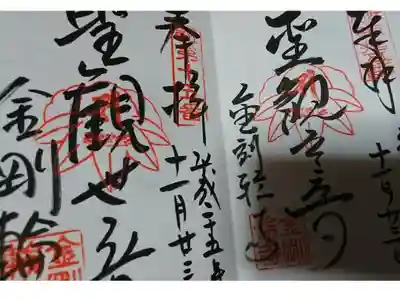 奉拝
平成二十五年
十一月廿三
聖観世音
金剛輪
金剛
奉拝
十一月廿三日
聖観世音
金剛輪寺
金剛